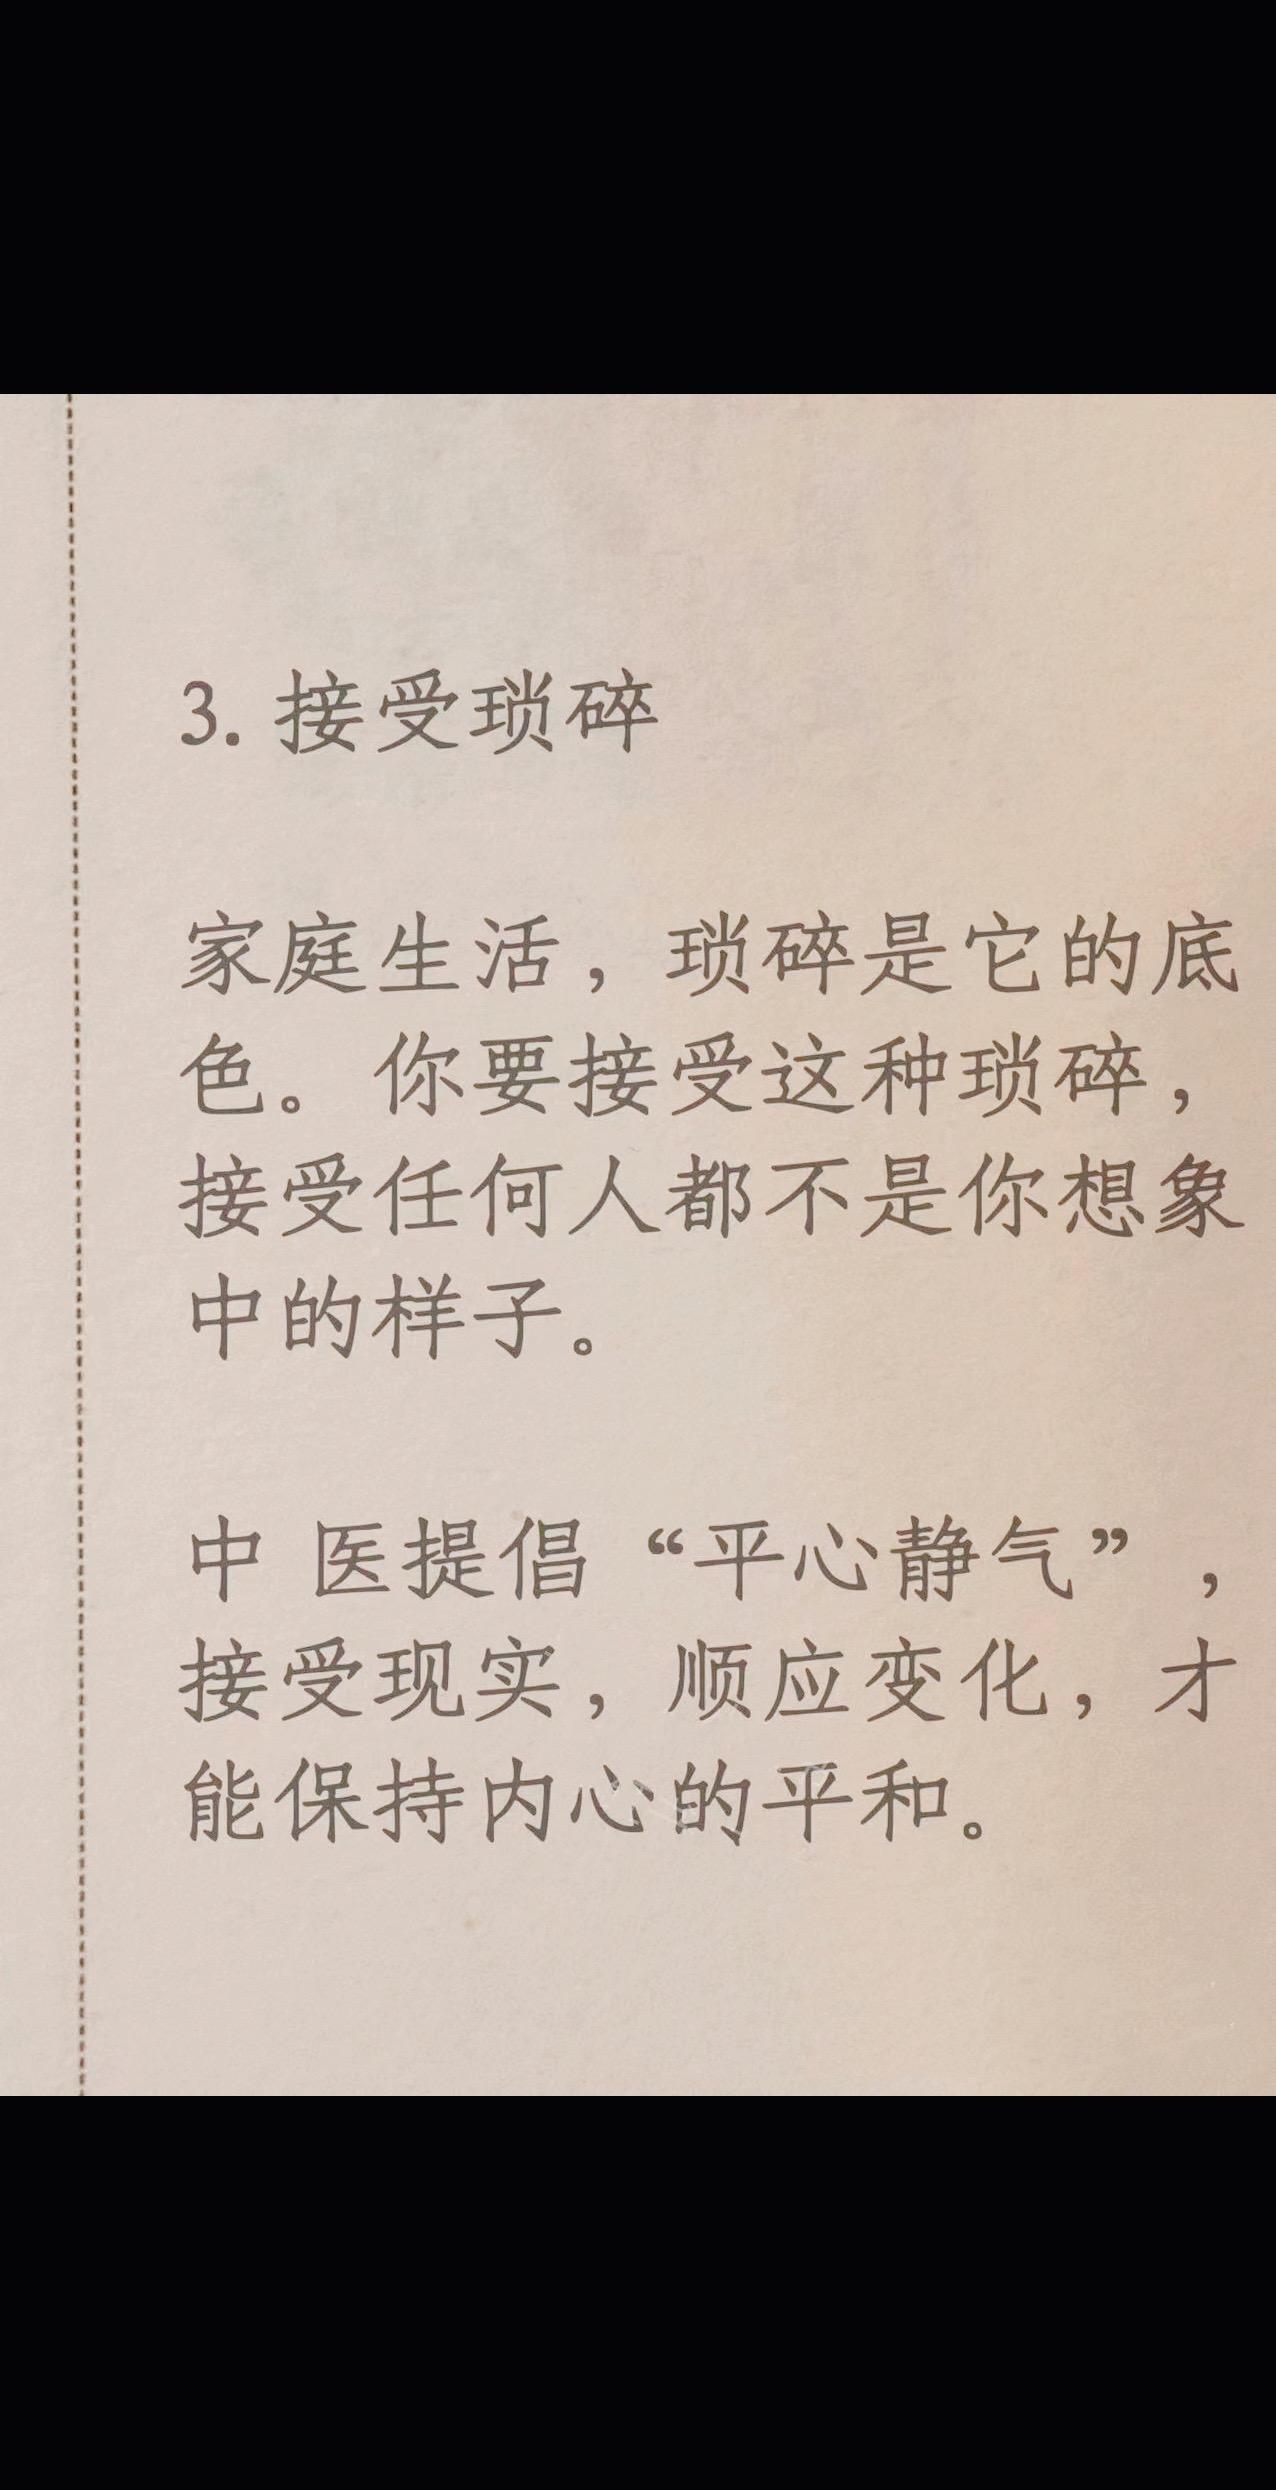 3. 接受琐碎
家庭生活，琐碎是它的底
色。你要接受这种琐碎，
接受任何人都不是你想象
中的样子。
中 医提倡“平心静气”，
接受现实，顺应变化，才
能保持内心的平和。